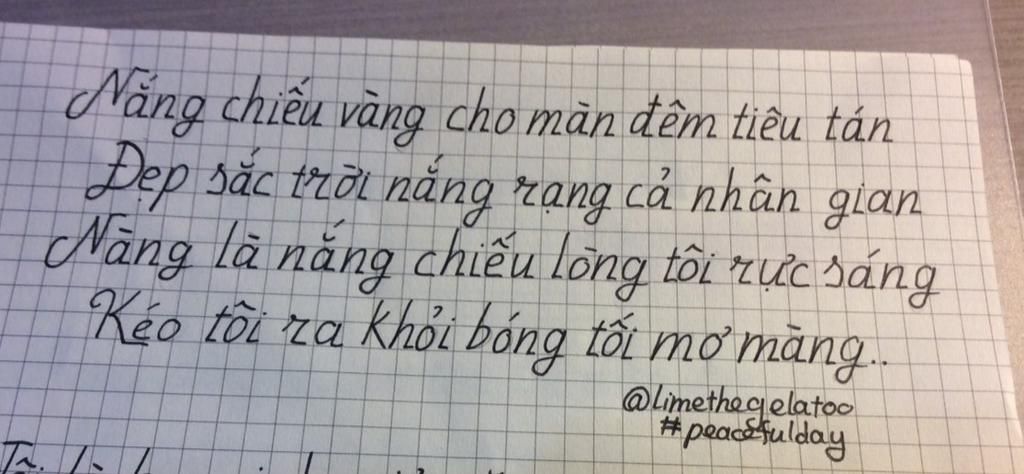 Nắng chiếu vàng cho màn đêm tiêu tán
Đẹp sắc trời nắng rạng cả nhân gian
Nàng là nắng chiếu lòng tôi rực sáng
Kéo tôi ra khỏi bóng tối mơ màng..
@limethegelatoo
#peacefulday